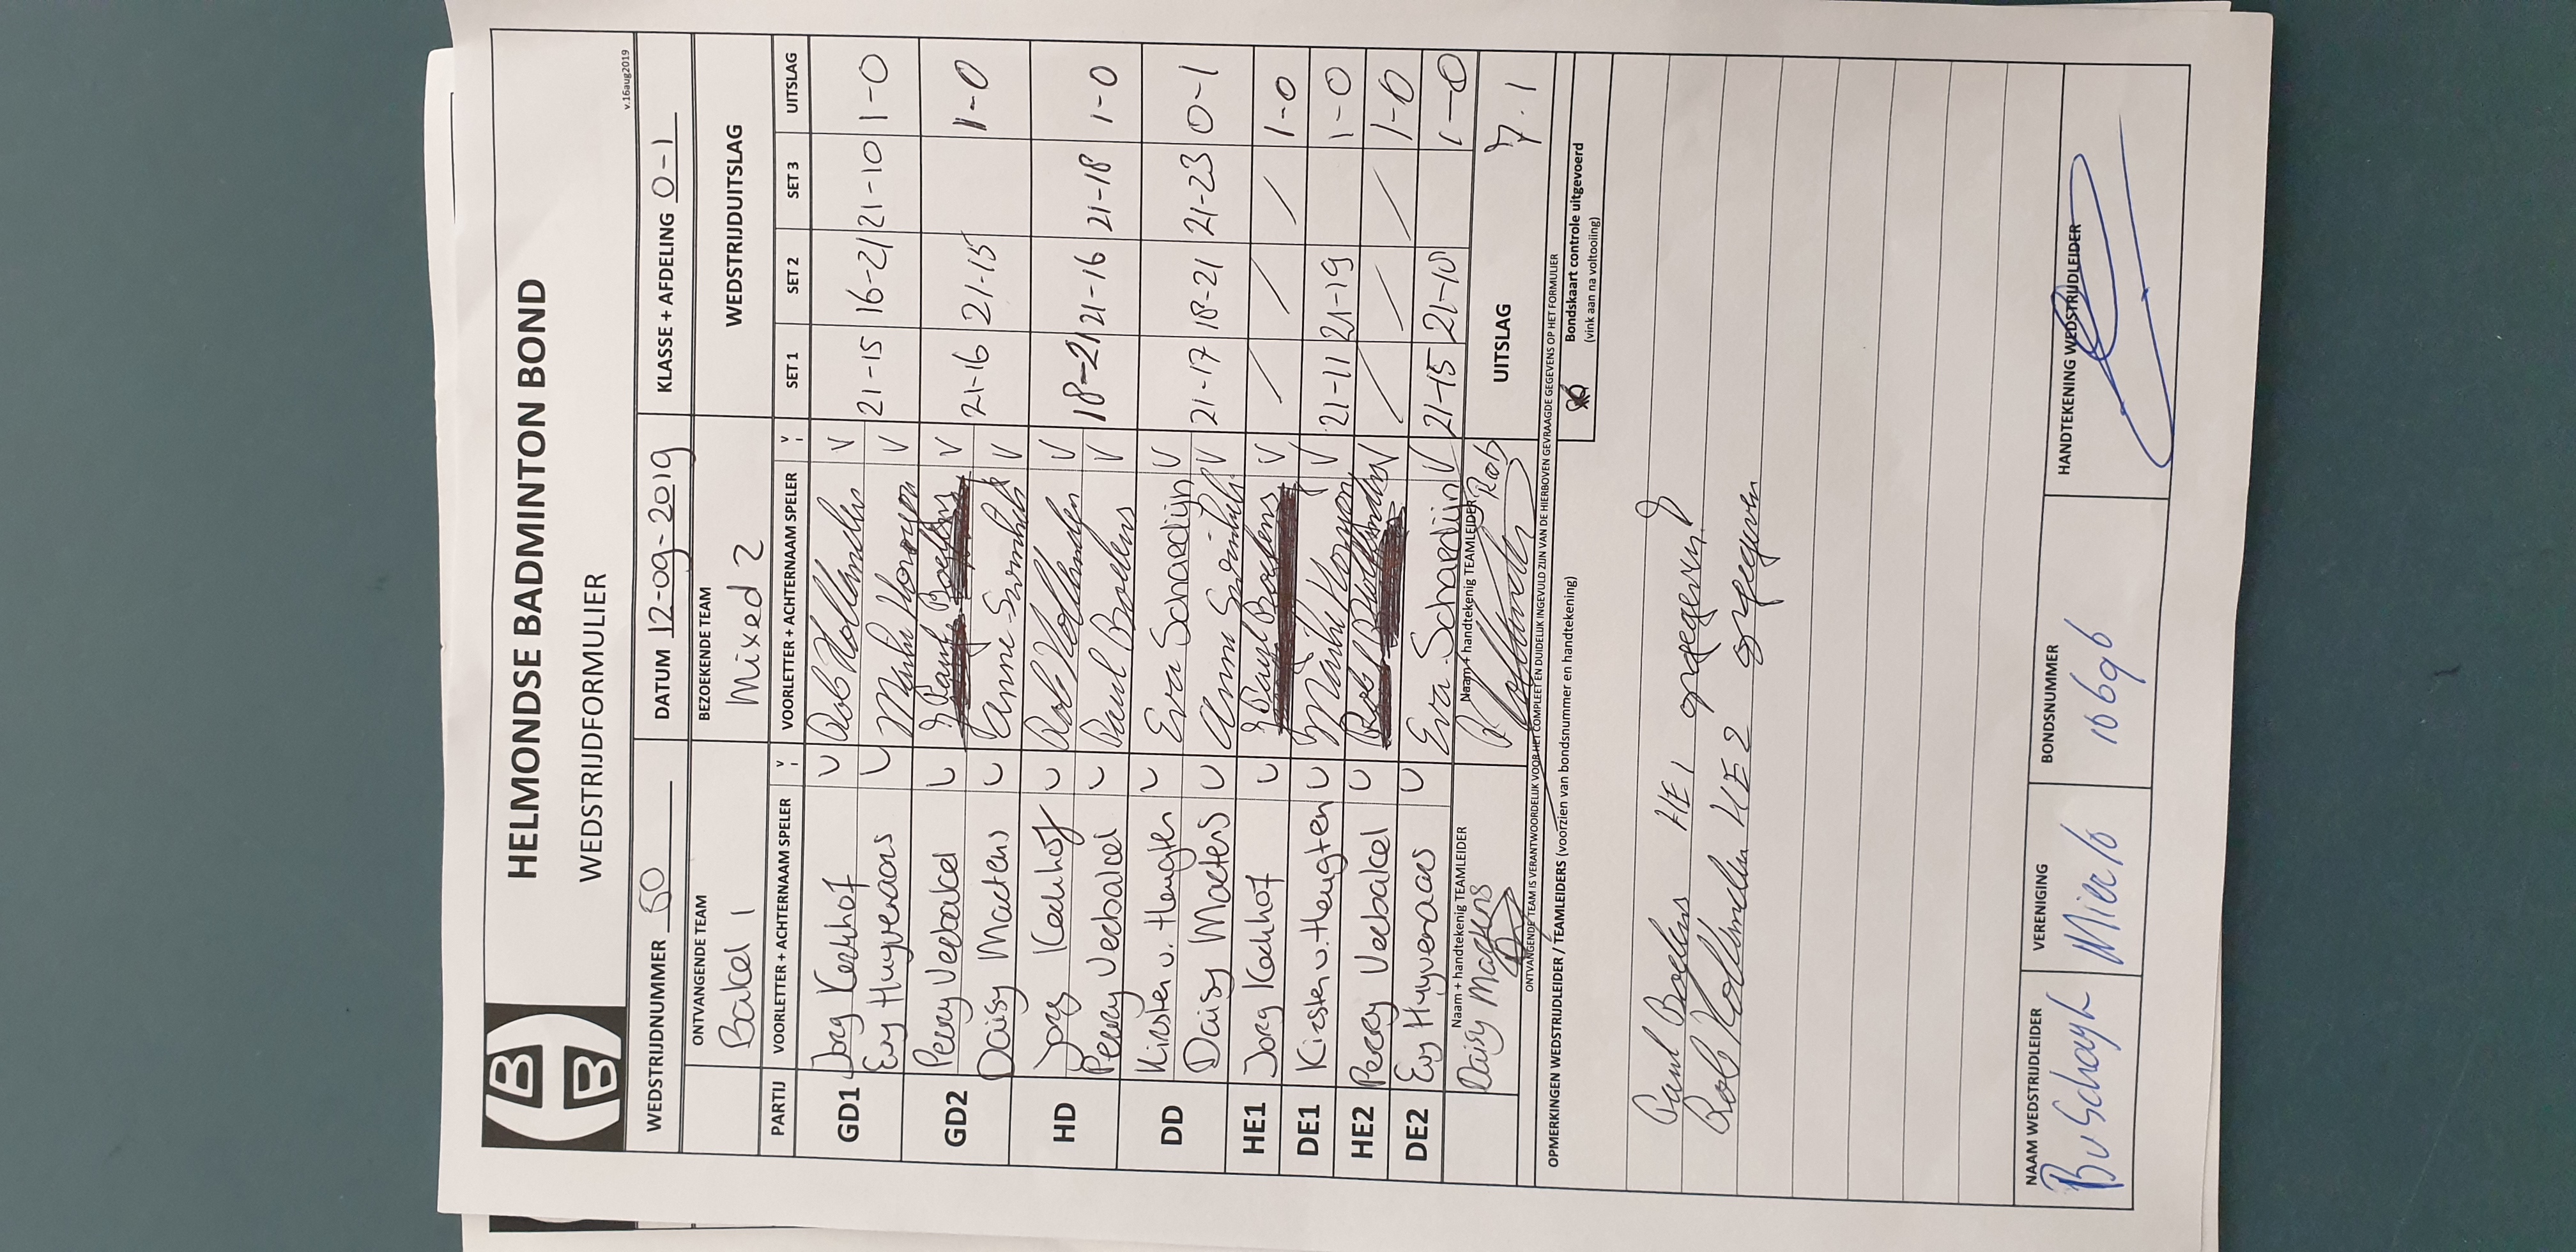 HELMONDSE BADMINTON BOND
WEDSTRIJDFORMULIER
v.16aug2019
WEDSTRIJDNUMMER 50 DATUM 12-09-2019 KLASSE + AFDELING 0-1
ONTVANGENDE TEAM BEZOEKENDE TEAM WEDSTRIJDUITSLAG
Bakel 1 Mixed 2
PARTIJ VOORLETTER + ACHTERNAAM SPELER V VOORLETTER + ACHTERNAAM SPELER V SET 1 SET 2 SET 3 UITSLAG
GD1 Jorg Kerkhof V Rob Hollanders V
Evy Huyveraars V V 21-15 16-21 21-10 1-0
GD2 Perry Verbakel V Paul Boelens V
Daisy Maetens V Anne V 21-16 21-15 1-0
HD Jorg Kerkhof V Rob Hollanders V
Perry Verbakel V Paul Boelens V 18-21 21-16 21-18 1-0
DD Kirsten v. Heugten V Eva Schaedijn V
Daisy Maetens V V 21-17 18-21 21-23 0-1
HE1 Jorg Kerkhof V Paul Boelens V / / / 1-0
DE1 Kirsten v. Heugten V V 21-11 21-19 1-0
HE2 Perry Verbakel V Rob V / / / 1-0
DE2 Evy Huyveraars V Eva Schaedijn V 21-15 21-10 1-0
Naam + handtekenig TEAMLEIDER Naam + handtekenig TEAMLEIDER UITSLAG 7.1
Daisy Maetens R Hollanders Rob
ONTVANGENDE TEAM IS VERANTWOORDELIJK VOOR HET COMPLEET EN DUIDELIJK INGEVULD ZIJN VAN DE HIERBOVEN GEVRAAGDE GEGEVENS OP HET FORMULIER
OPMERKINGEN WEDSTRIJDLEIDER / TEAMLEIDERS (voorzien van bondsnummer en handtekening)
Bondskaart controle uitgevoerd
(vink aan na voltooling)
Paul Boelens HE 1 opgegeven
Rob Hollanders HE 2 opgegeven
NAAM WEDSTRIJDLEIDER VERENIGING BONDSNUMMER HANDTEKENING WEDSTRIJDLEIDER
B v Schayk Mierlo 10696